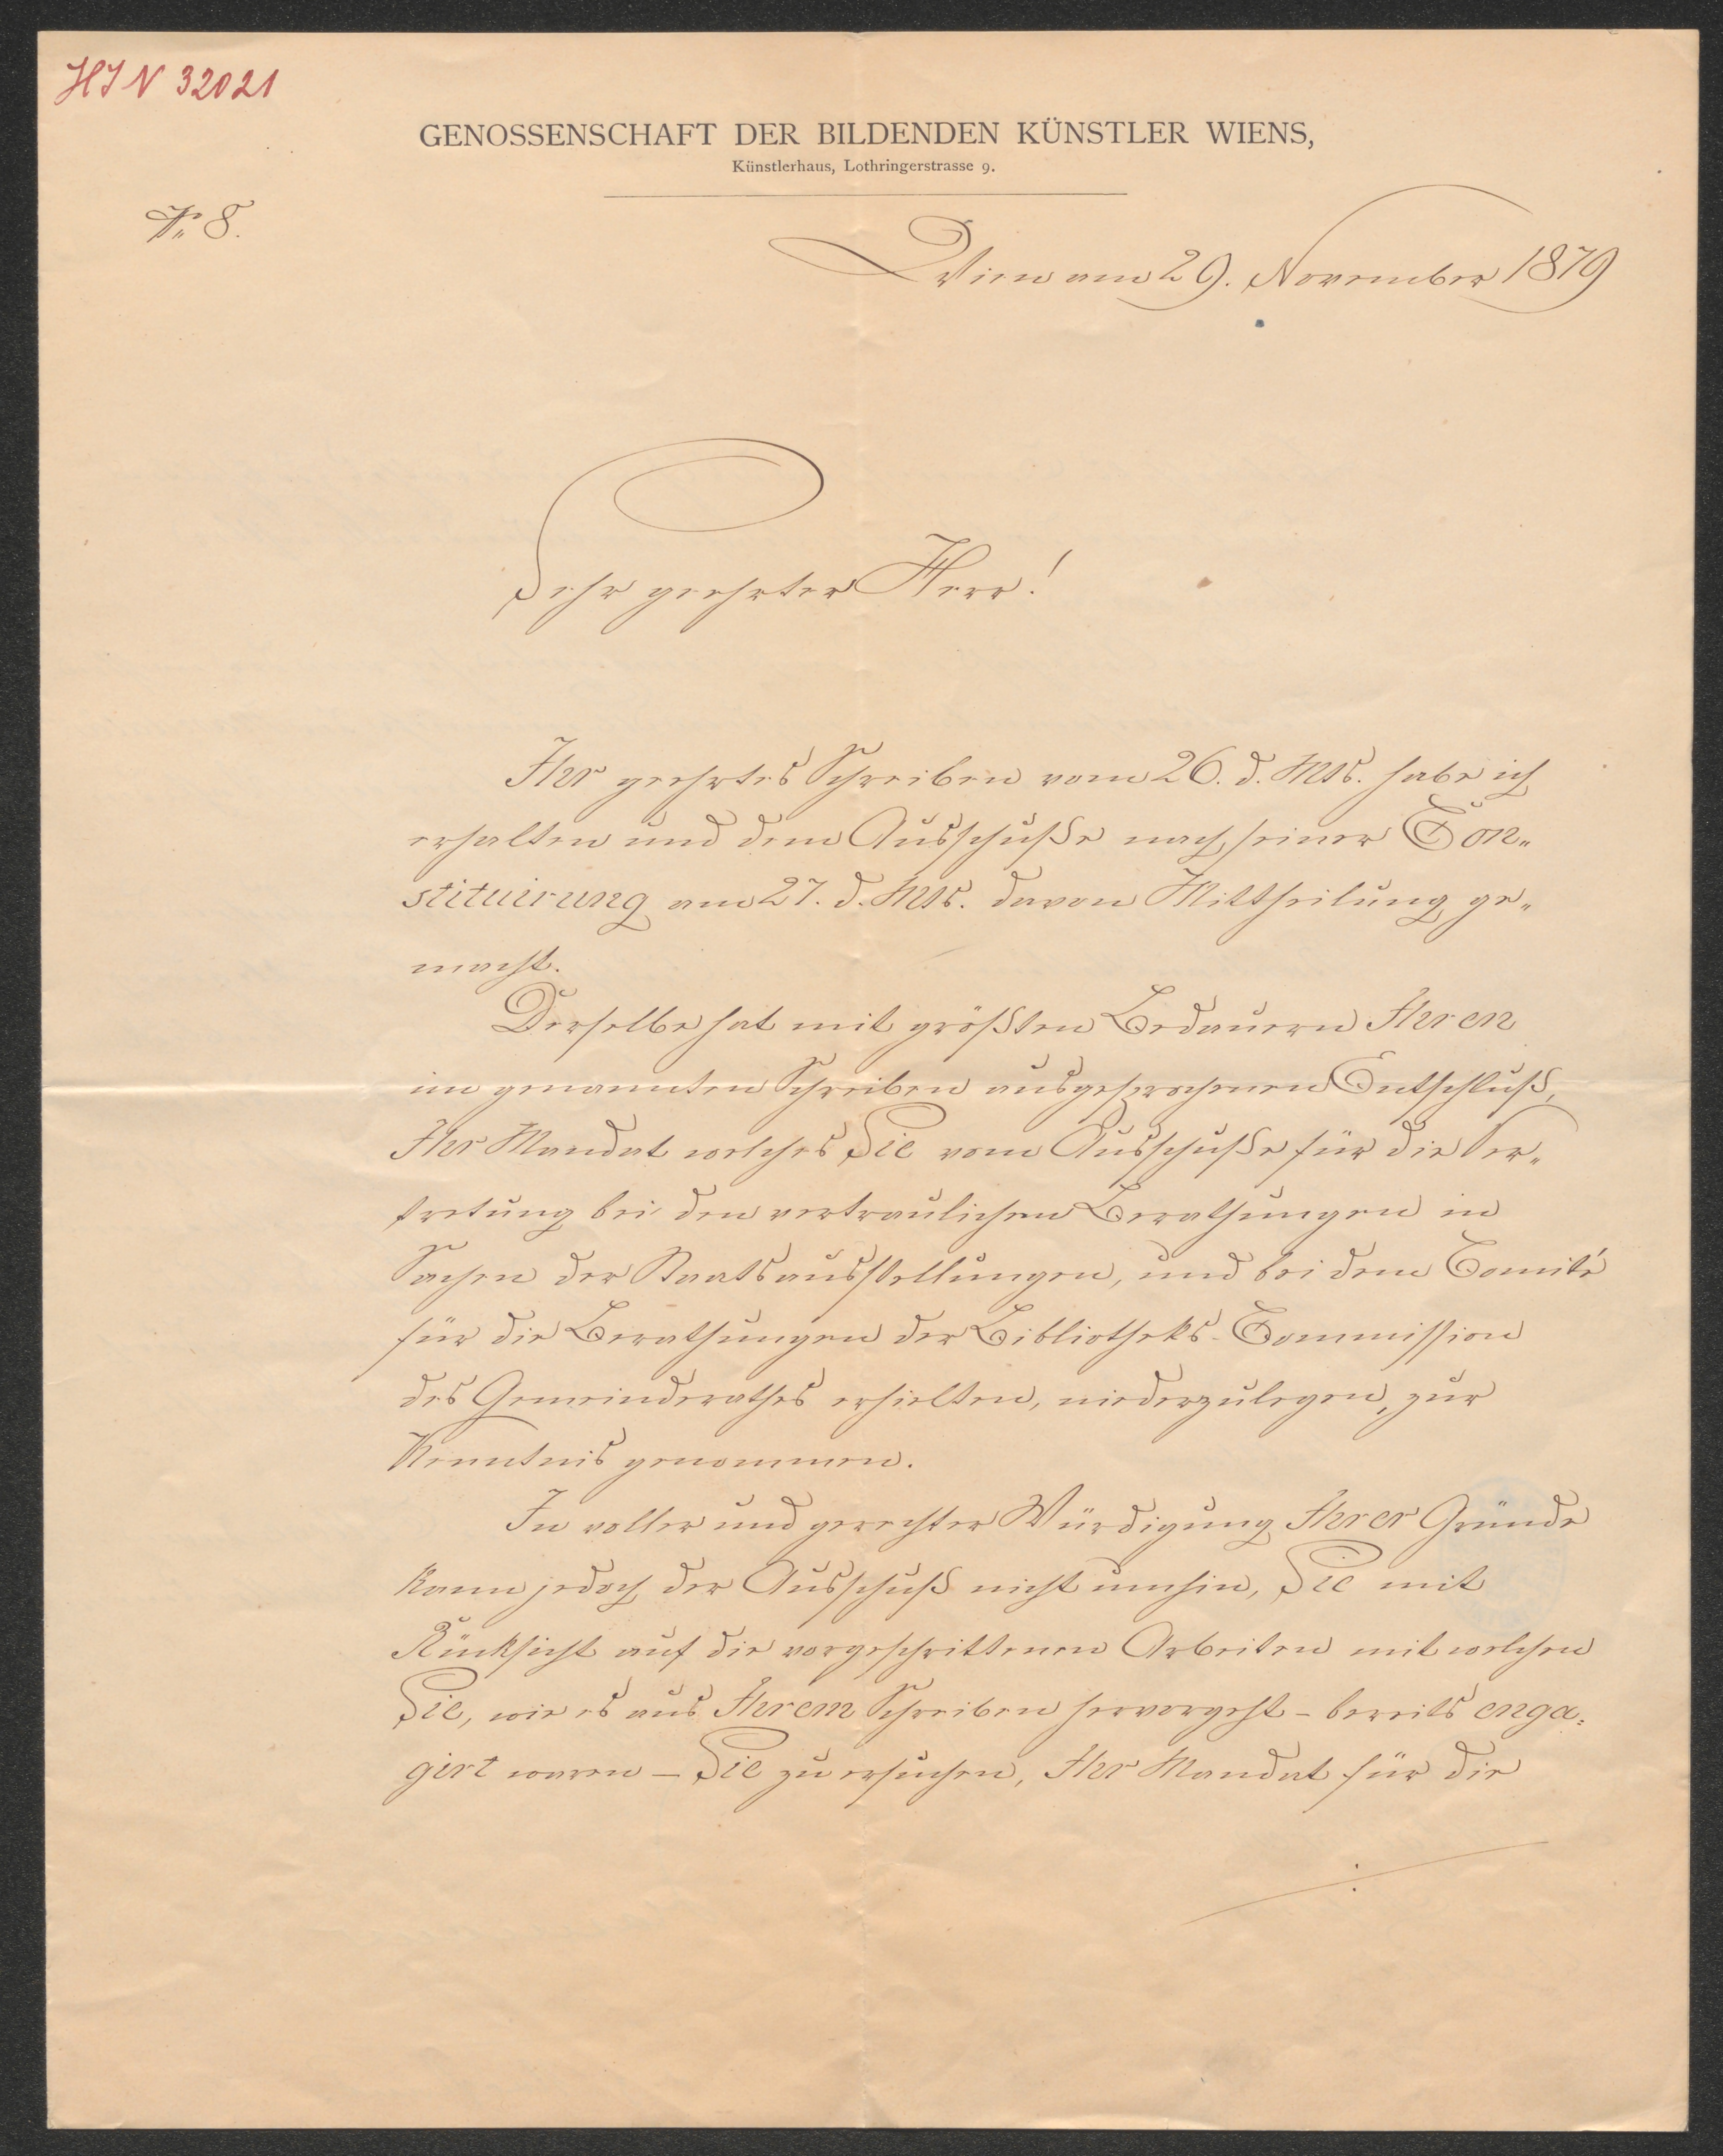 HIN 32021
GENOSSENSCHAFT DER BILDENDEN KÜNSTLER WIENS,
Künstlerhaus, Lothringerstrasse 9.
No 8.
Wien am 29. November 1879
Sehr geehrter Herr!
Ihr geehrtes Schreiben vom 26. d. Mts. habe ich
erhalten und dem Ausschuße nach seiner Con„
stituirung am 27. d. Mts. davon Mittheilung ge„
macht.
Derselbe hat mit größten Bedauern Ihren
im genannten Schreiben ausgesprochenen Entschluß,
Ihr Mandat welches Sie vom Ausschuße für die Ver„
tretung bei den vertraulichen Berathungen in
Sachen der Staatsausstellungen, und bei dem Comité
für die Berathungen der Bibliotheks-Commission
des Gemeinderathes erhielten, niederzulegen, zur
Kenntnis genommen.
In voller und gerechter Würdigung Ihrer Gründe
kann jedoch der Ausschuß nicht umhin, Sie mit
Rücksicht auf die vorgeschrittenen Arbeiten mit welchen
Sie, wie es aus Ihrem Schreiben hervorgeht – bereits enga=
girt waren – Sie zu ersuchen, Ihr Mandat für die